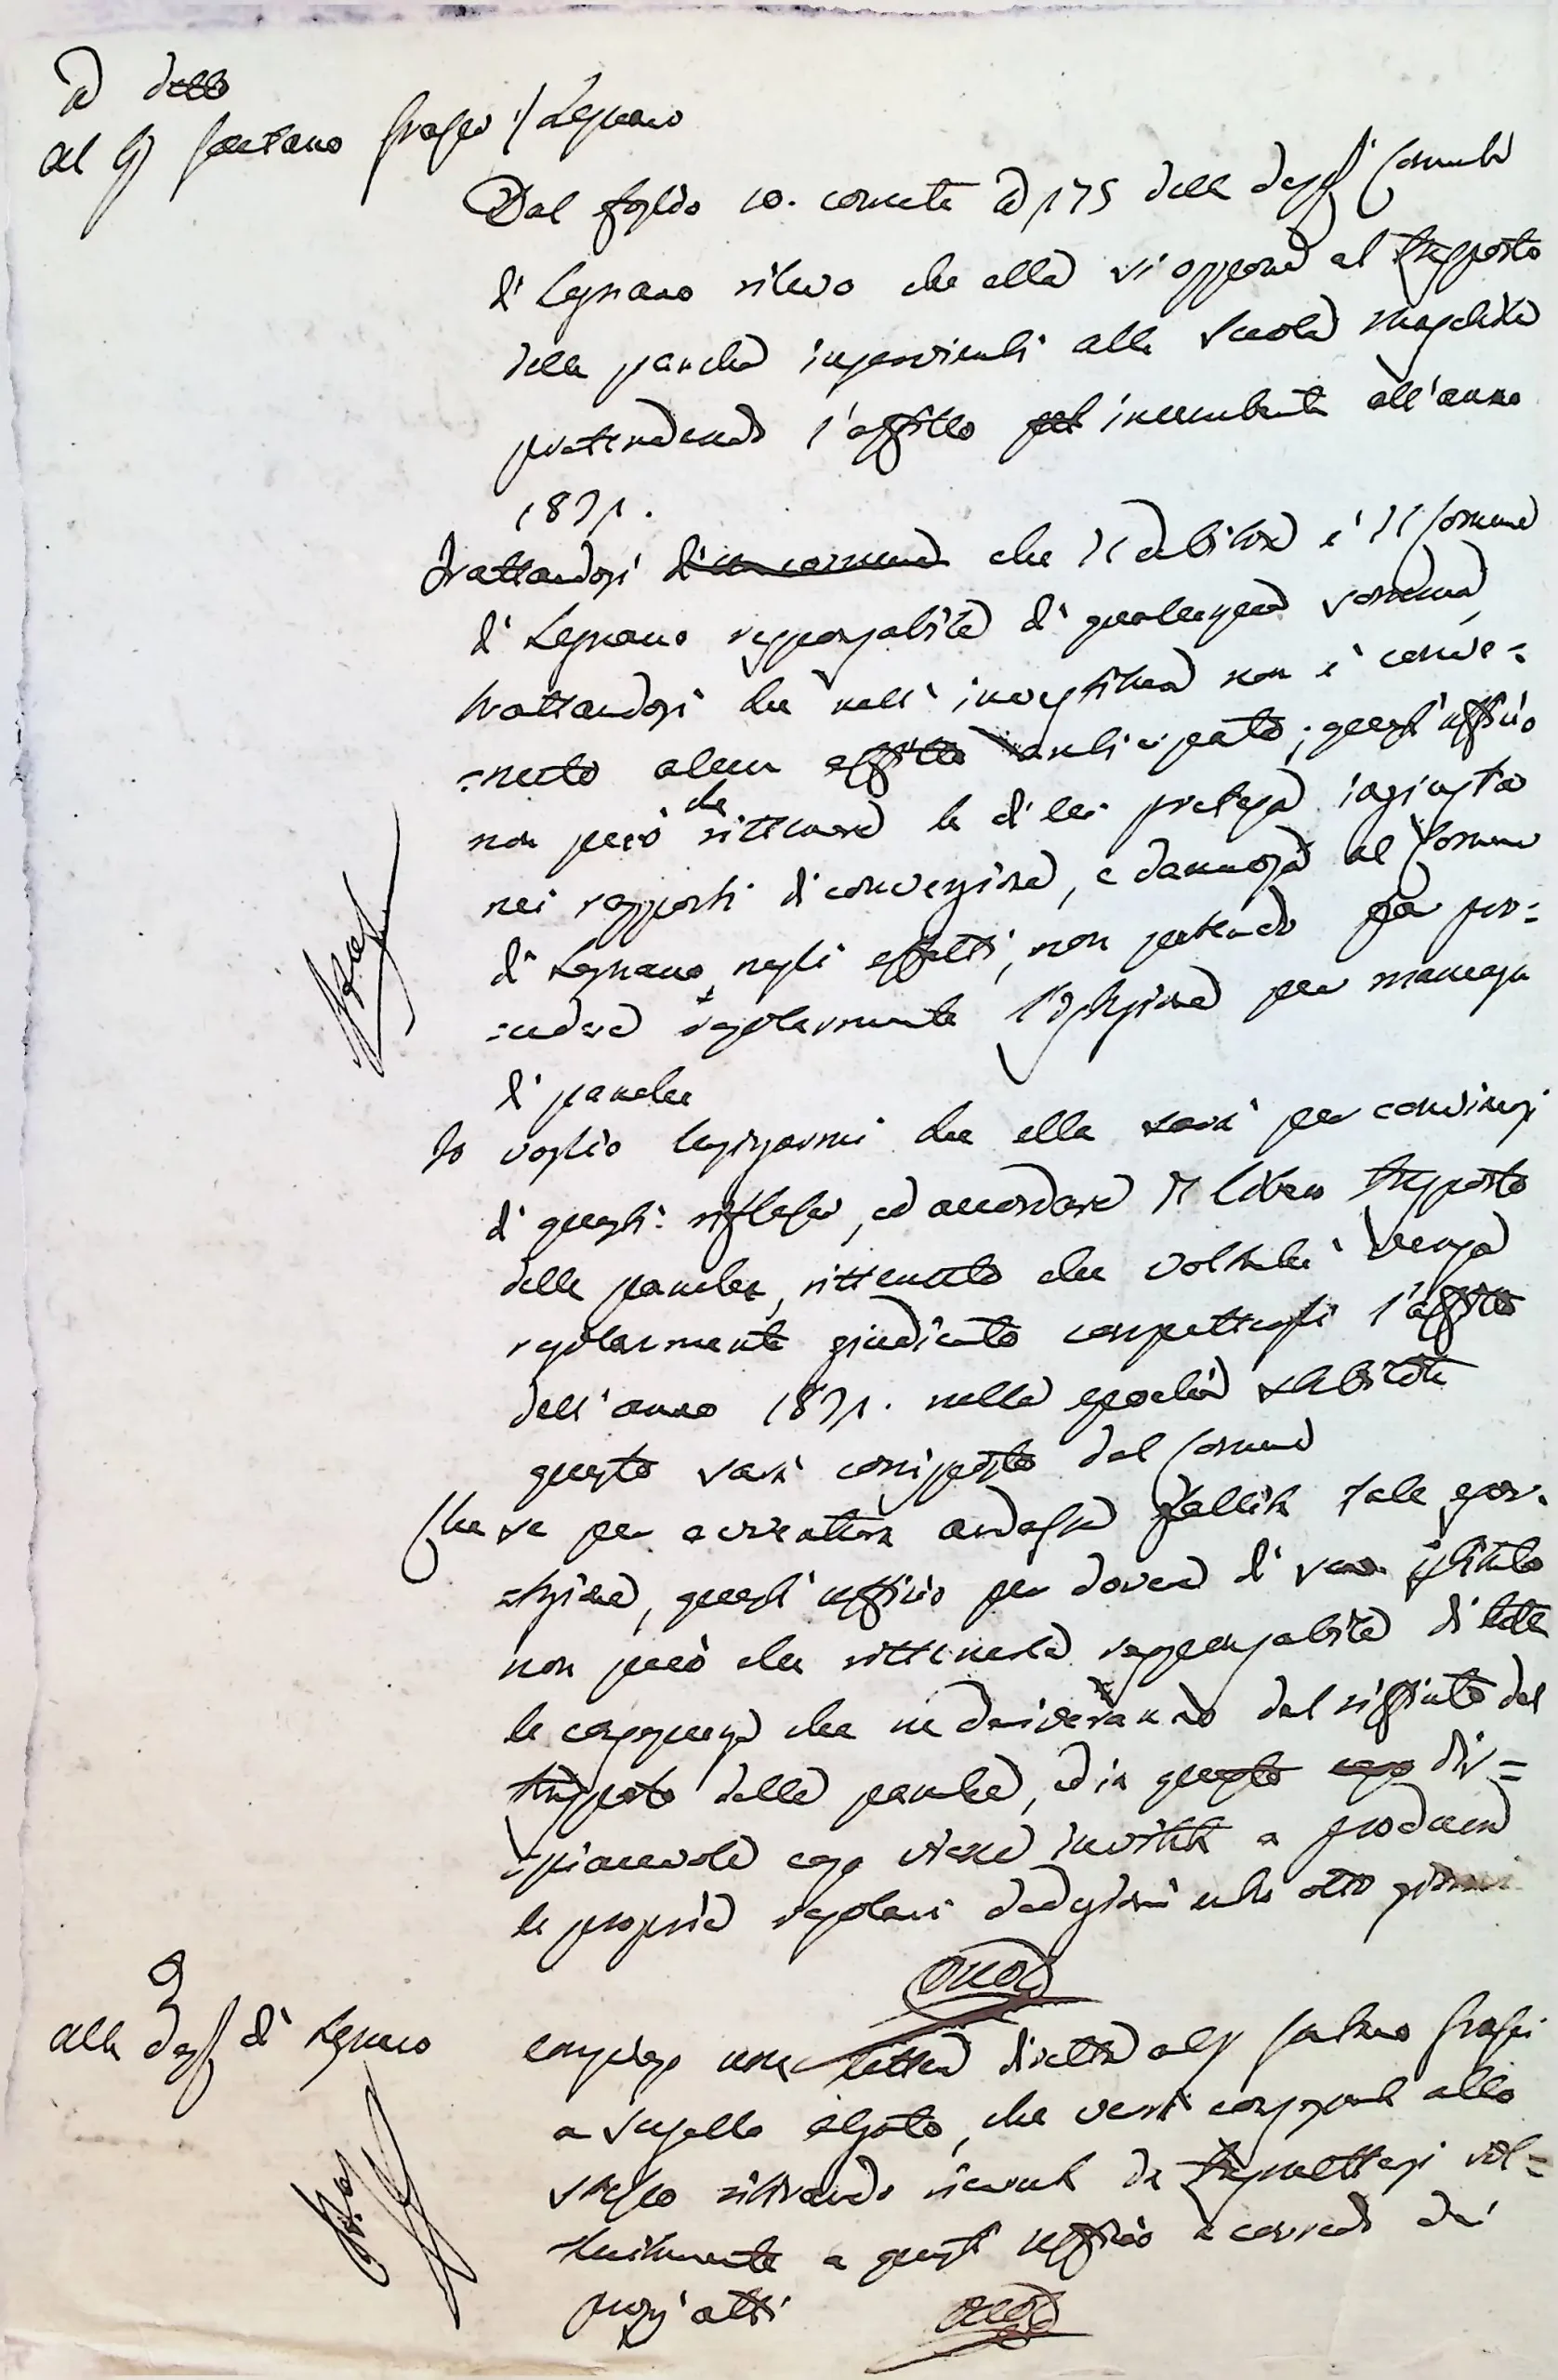 detto
Al Sig Gaetano Grassi / Legnano
Dal foglio 10. corrente 175 della Deputazione Comunale
di Legnano rilevo che ella si oppone al trasporto
delle panche inservienti alla scuola maschile
pretendendo l'affitto incumbente all'anno
1831.
trattandosi che il debitore è il Comune
di Legnano responsabile di qualunque somma,
trattandosi che nell'investitura non è conve=
=nuto alcun affitto anticipato; quest'ufficio
non può che rittenere la di lei pretesa ingiusta
nei rapporti di convenzione, e dannosa al Comune
di Legnano negli effetti, non potendo pro=
=cedere regolarmente l'istruzione per mancanza
di panche
Io voglio lusingarmi che ella sarà per convincersi
di questi riflessi, ed accordare il libero trasporto
delle panche, rittenuto che voltachè venga
regolarmente giudicato competterli l'affitto
dell'anno 1831. nelle epoche stabilite
questo sarà corrisposto dal Comune
Che se per avventura andasse fallita tale
quest'ufficio per dovere di suo istituto
non può che rittenerla responsabile di tutte
le conseguenze che ne deriveranno dal rifiuto del
trasporto delle panche, ed in questo caso dis=
=piacevole caso viene invitata a produrre
le proprie regolari deduzioni entro otto giorni
alla Dep di Legnano
una lettera diretta al Sig Gaetano Grassi
a sigillo alzato, che verrà consegnata allo
stesso ritirando ricevuta da trasmettersi sol=
=lecitamente a quest'ufficio a corredo dei
atti